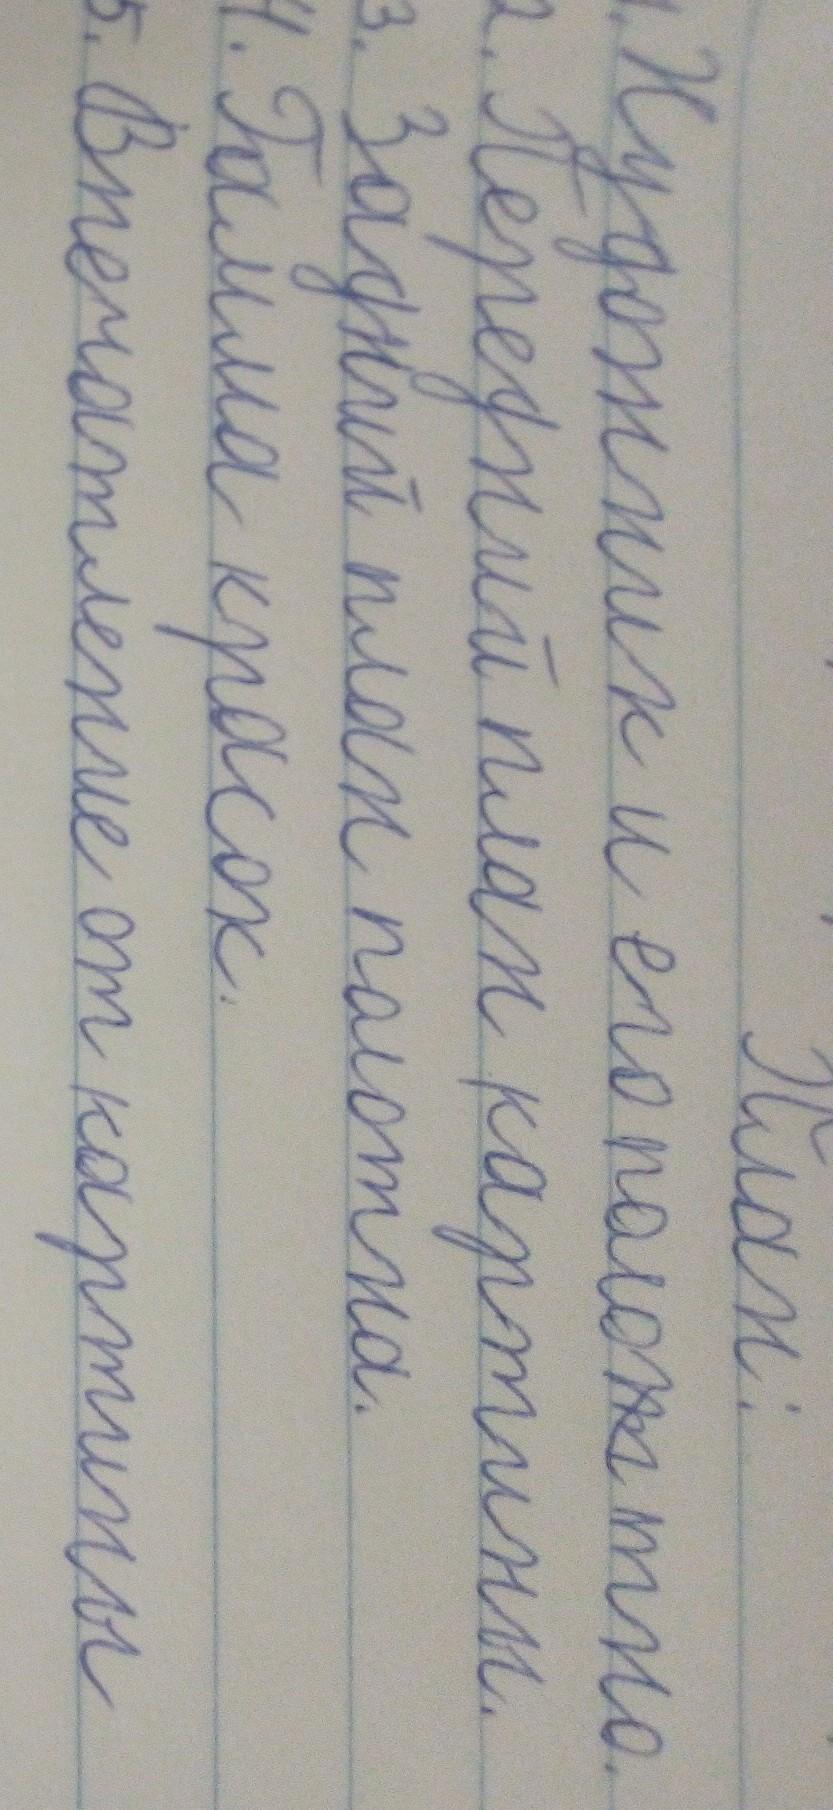 План:
1. Художник и его полотно.
2. Передний план картины.
3. Задний план полотна.
4. Гамма красок.
5. Впечатление от картины